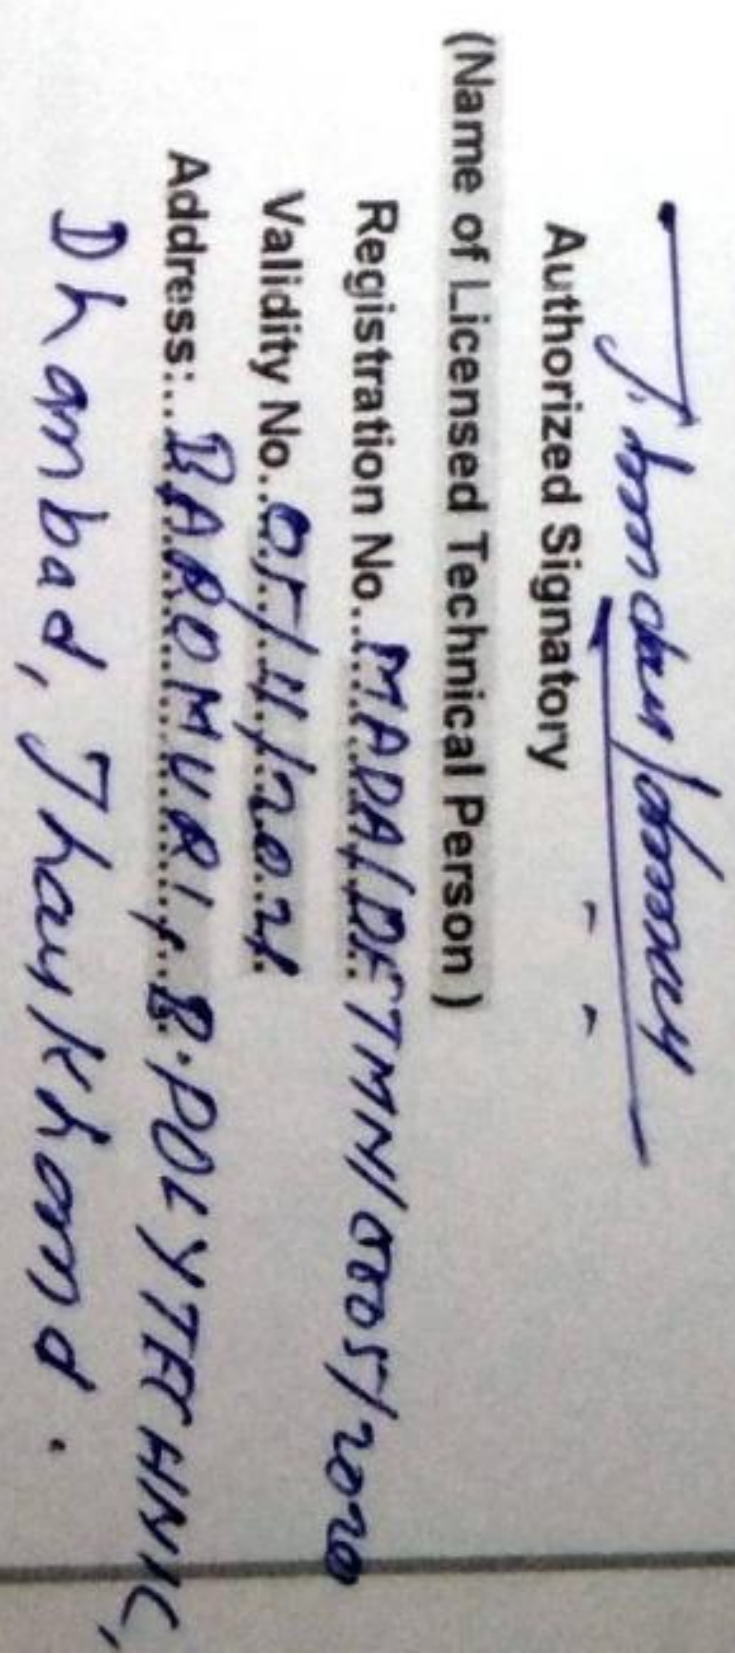 Authorized Signatory
(Name of Licensed Technical Person )
Registration No....MADA/DETMN/0005/2020
Validity No...05/11/2021
Address:...BAROMURI, B.POLYTECHNIC,
Dhanbad, Jharkhand.